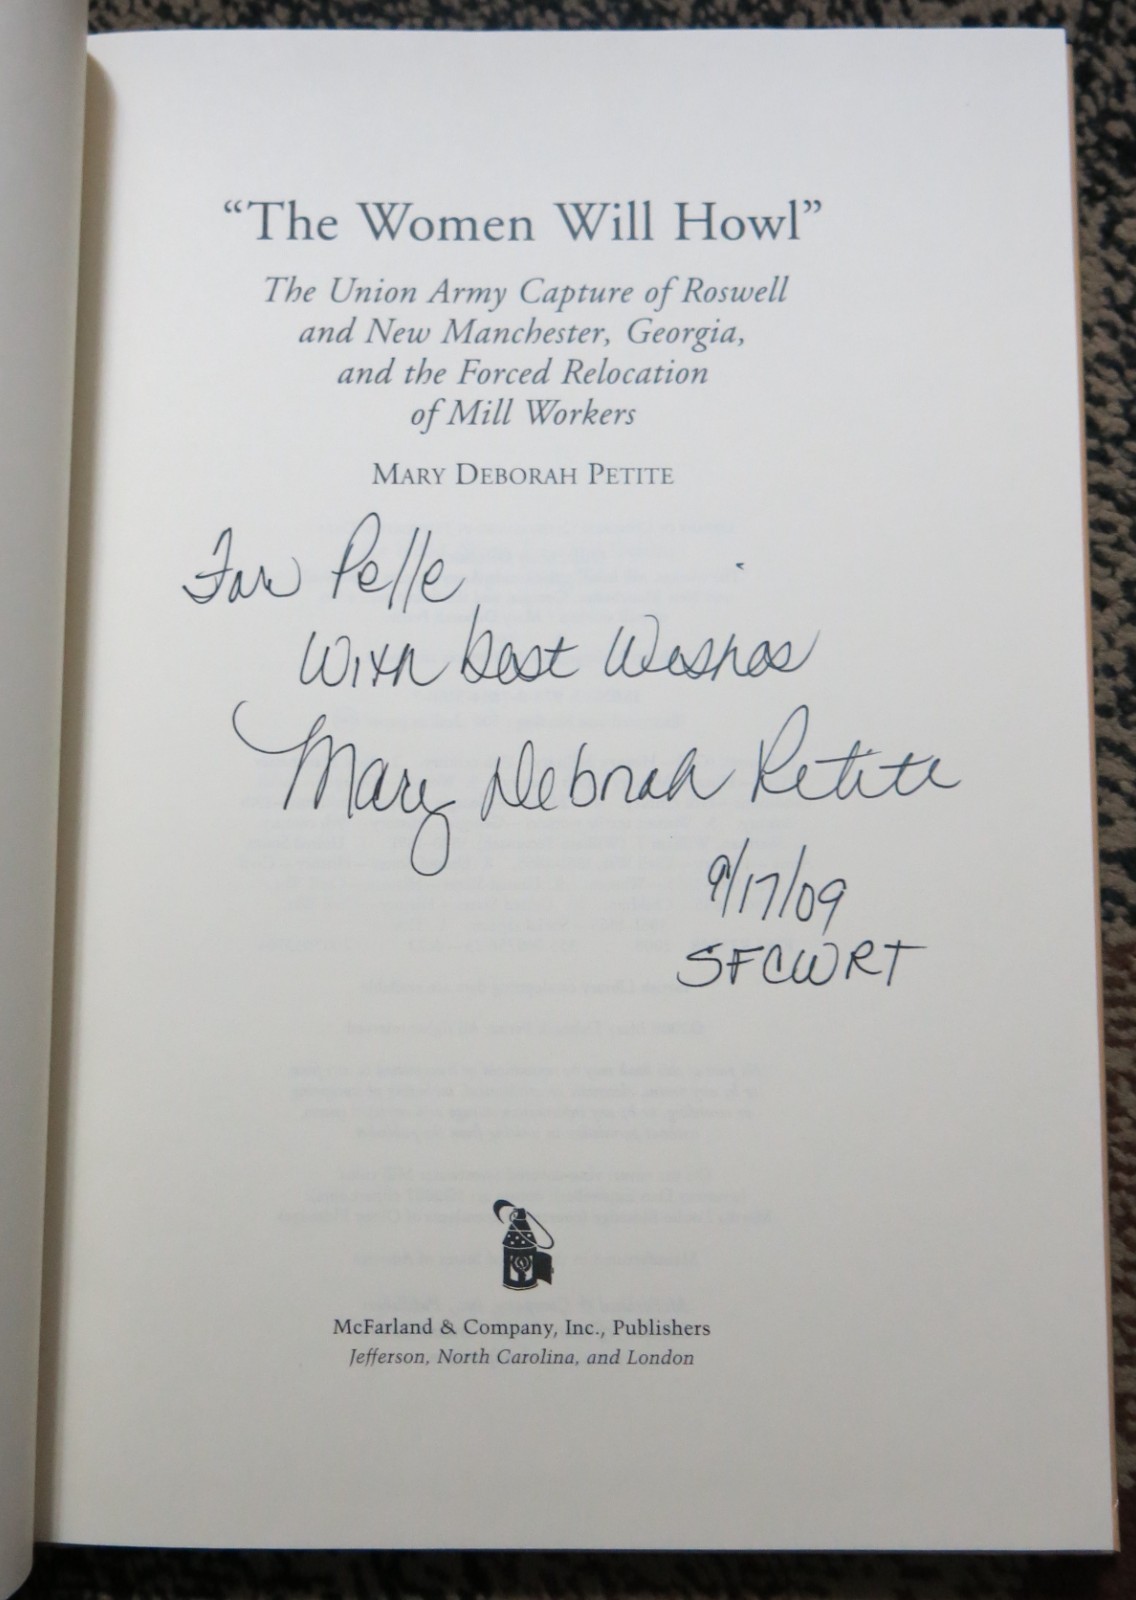 “The Women Will Howl”
The Union Army Capture of Roswell
and New Manchester, Georgia,
and the Forced Relocation
of Mill Workers
MARY DEBORAH PETITE
For Pelle
With best Wishes
Mary Deborah Petite
9/17/09
SFCWRT
McFarland & Company, Inc., Publishers
Jefferson, North Carolina, and London